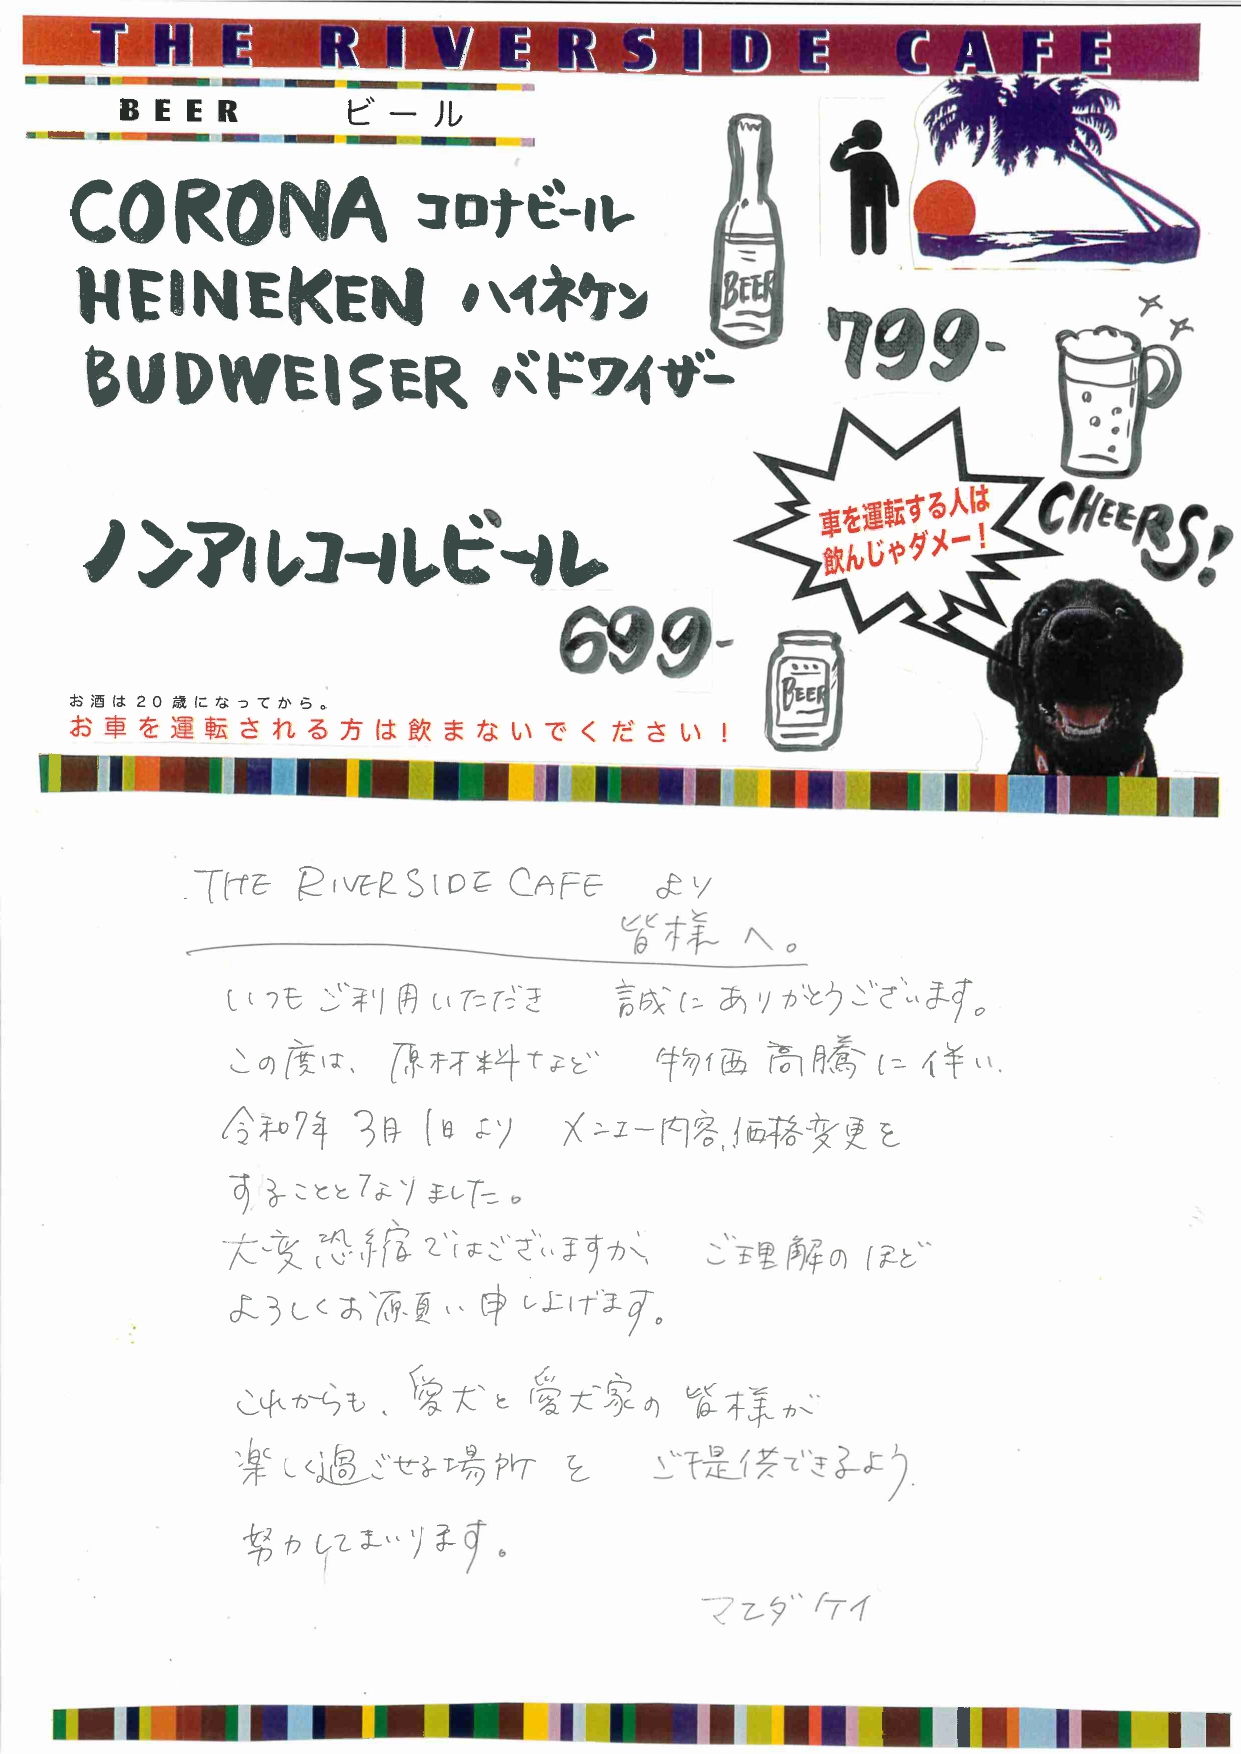 THE RIVERSIDE CAFE
BEER ビール
CORONA コロナビール
HEINEKEN ハイネケン
BUDWEISER バドワイザー
BEER
799-
車を運転する人は
飲んじゃダメー!
CHEERS!
ノンアルコールビール
699-
BEER
お酒は20歳になってから。
お車を運転される方は飲まないでください!
THE RIVERSIDE CAFE より
皆様へ。
いつもご利用いただき 誠にありがとうございます。
この度は、原材料など 物価高騰に伴い、
令和7年 3月1日より メニュー内容、価格変更を
することとなりました。
大変恐縮ではございますが、 ご理解のほど
よろしくお願い申し上げます。
これからも、愛犬と愛犬家の皆様が
楽しく過ごせる場所を ご提供できるよう、
努力してまいります。
マエダケイ